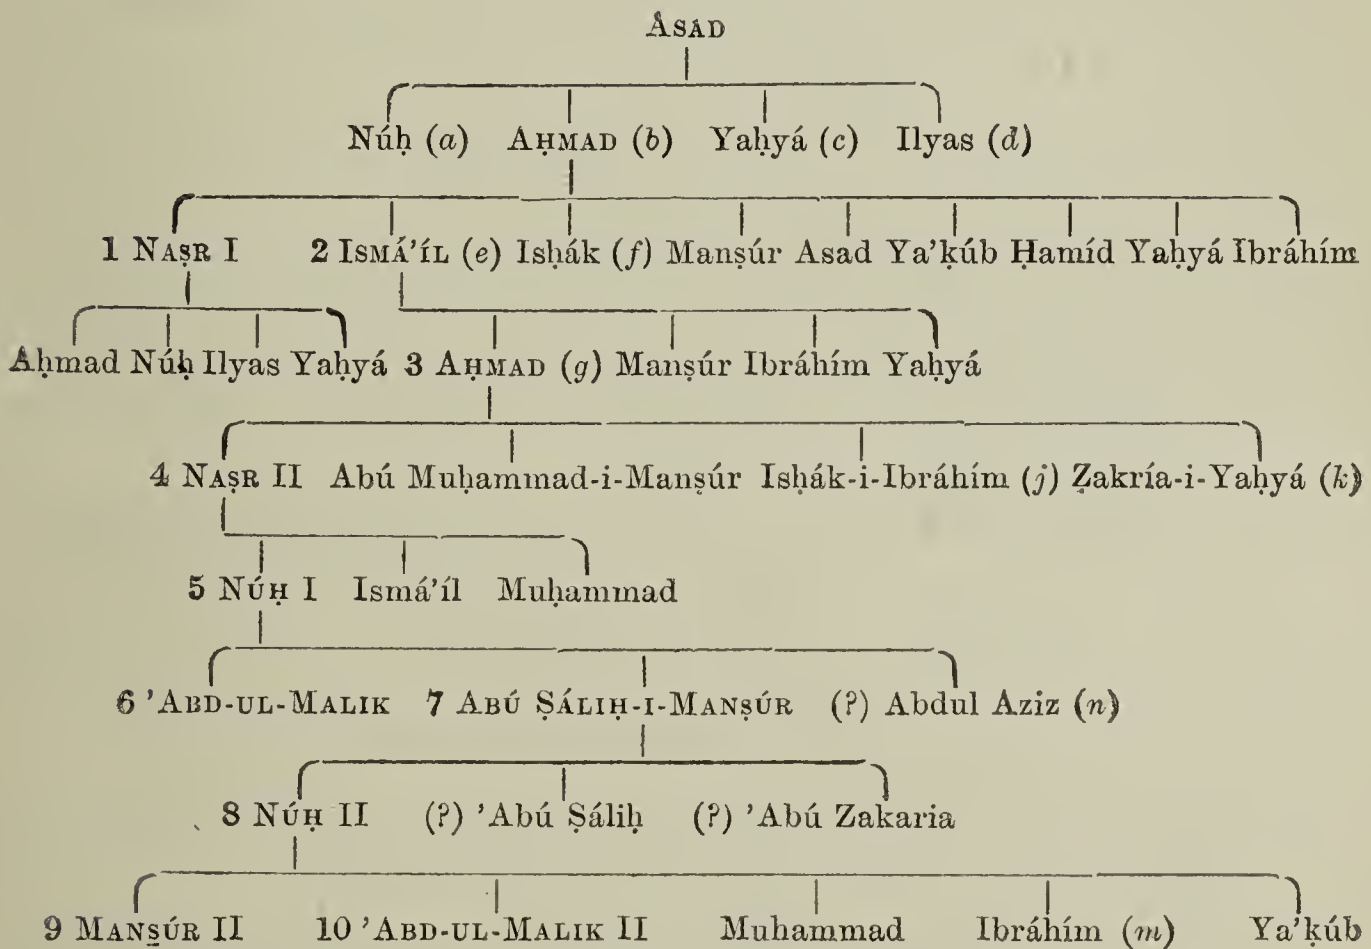 ASAD
Núḥ (a) AḤMAD (b) Yaḥyá (c) Ilyas (d)
1 NAṢR I 2 ISMÁ’ÍL (e) Isḥák (f) Manṣúr Asad Ya’ḳúb Ḥamíd Yaḥyá Ibráhím
Aḥmad Núḥ Ilyas Yaḥyá 3 AḤMAD (g) Manṣúr Ibráhím Yaḥyá
4 NAṢR II Abú Muḥammad-i-Manṣúr Isḥák-i-Ibráhím (j) Ẓakría-i-Yaḥyá (k)
5 NÚḤ I Ismá’íl Muḥammad
6 ’ABD-UL-MALIK 7 ABÚ ṢÁLIḤ-I-MANṢÚR (?) Abdul Aziz (n)
8 NÚḤ II (?) ’Abú Ṣáliḥ (?) ’Abú Zakaria
9 MANṢÚR II 10 ’ABD-UL-MALIK II Muhammad Ibráhím (m) Ya’ḳúb